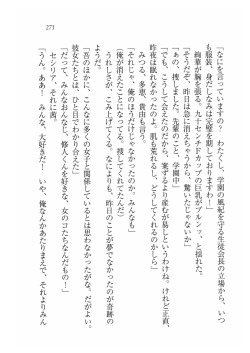 「なにを言っていますの？　わたくし、学園の風紀を守る生徒会長の立場から、いつ
も服装、身だしなみは完璧を期しておりますわ！」
絢華が胸を張る。九十七センチＤカップの巨乳がブルンッ、と揺れた。
「そうだぞ、昨日は急に消えちゃうから、驚いたじゃないか」
「あの、捜しました。先輩のこと、学園中」
「でも、こうして会えたのだから、案ずるより産むが易しというわけね。けれど正直、
昨夜は眠れなかったのよ。肌も荒れるし、どうしてくれるのかしら」
みつる、多恵、貴由も言う。
「それじゃ、俺のほうだけじゃなかったのか、みんなも」
俺が消えたことになってる、捜してくれたのか。
しかし、いまは、そんなことより、なによりも、昨日のことが夢でなかったのが奇跡の
ようだ。
「吾のほかに、こんなに多くの女子と関係しているとは思わなかったがな。だがよい。
彼女たちとは、ひと目でわかり合えた」
「だって、みんなおなじ、修人くんを好きな、女のコたちなんだもの！」
セシリア、それに茜。
「うん、ああ！　みんな、大好きだ！　いや、俺なんかあたりまえで、それよりみん
271